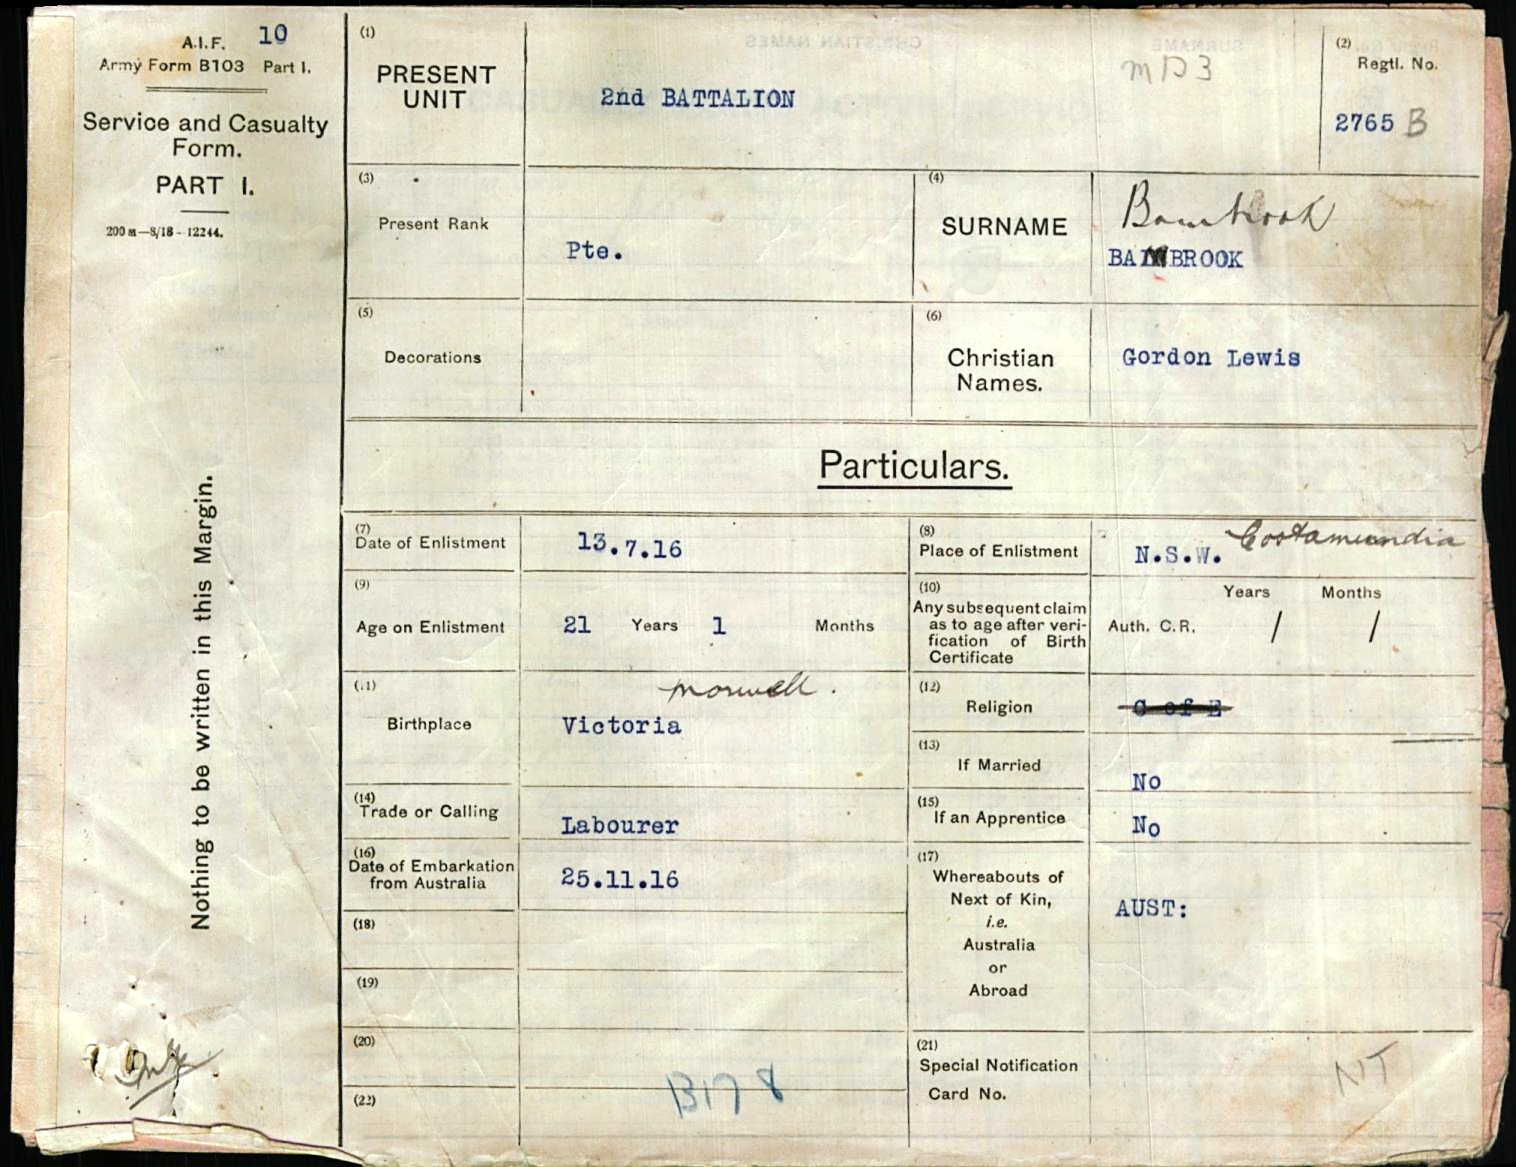 A.I.F. 10
Army Form B103 Part I.
Service and Casualty
Form.
PART I.
200 m—8/18 - 12244.
Nothing to be written in this Margin.
(1)
PRESENT
UNIT
2nd BATTALION
MD3
(2)
Regtl. No.
2765 B
(3)
Present Rank
Pte.
(4)
SURNAME
Bambrook
BAMBROOK
(5)
Decorations
(6)
Christian
Names.
Gordon Lewis
Particulars.
(7)
Date of Enlistment
13.7.16
(8)
Place of Enlistment
N.S.W. Cootamundia
(9)
Age on Enlistment
21 Years 1 Months
(10)
Any subsequent claim
as to age after veri-
fication of Birth
Certificate
Years Months
Auth. C.R. / /
(11)
Birthplace
Morwell.
Victoria
(12)
Religion
C of E
(13)
If Married
No
(14)
Trade or Calling
Labourer
(15)
If an Apprentice
No
(16)
Date of Embarkation
from Australia
25.11.16
(17)
Whereabouts of
Next of Kin,
i.e.
Australia
or
Abroad
AUST:
(18)
(19)
(20)
(21)
Special Notification
Card No.
NT
(22)
B178